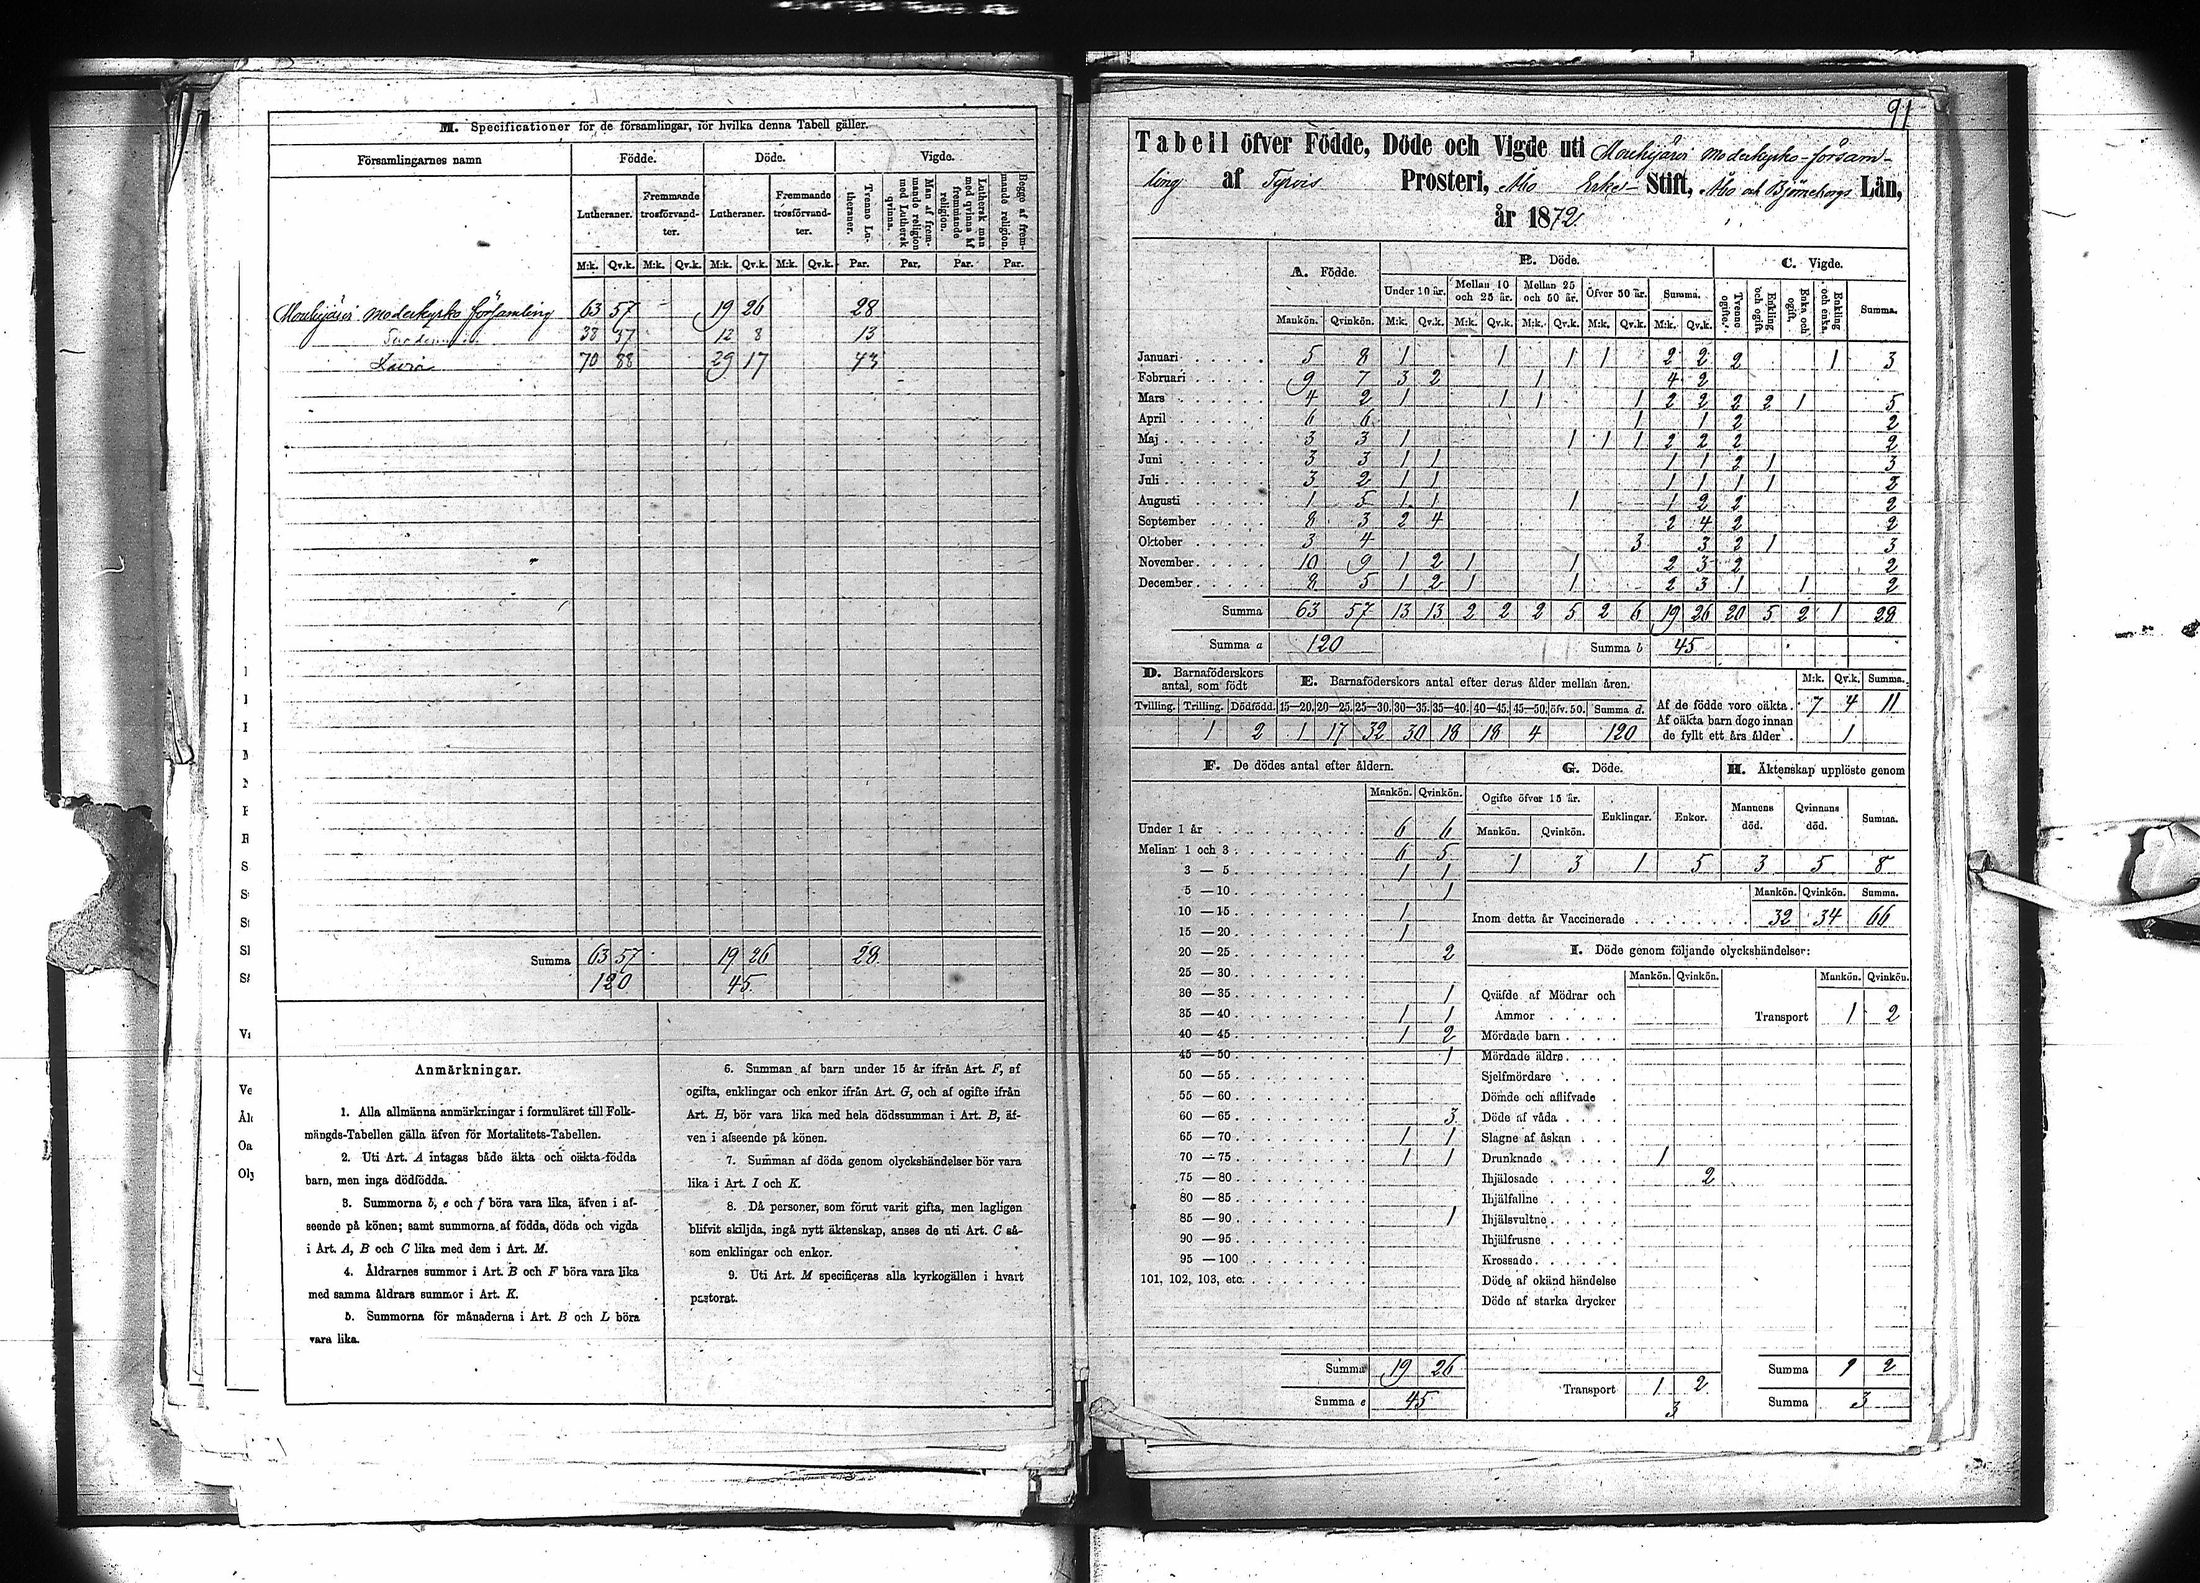 M. Specificationer för de församlingar, för hvilka denna Tabell gäller.
Församlingarnes namn | Födde. | Döde. | Vigde.
Lutheraner. | Fremmande trosförvandter. | Lutheraner. | Fremmande trosförvandter. | Tvenne Lutheraner. | Man af fremmande religion med Luthersk qvinna. | Luthersk man med qvinna af fremmande religion. | Begge af fremmande religion.
M:k. | Qv.k. | M:k. | Qv.k. | M:k. | Qv.k. | M:k. | Qv.k. | Par. | Par. | Par. | Par.
Mouhijärvi moderkyrko församling 63 57 19 26 28
38 37 12 8 13
Lavia 70 88 29 17 43
Summa 63 57 19 26 28
120 45
Anmärkningar.
1. Alla allmänna anmärkningar i formuläret till Folk-
mängds-Tabellen gälla äfven för Mortalitets-Tabellen.
2. Uti Art. A intagas både äkta och oäkta födda
barn, men inga dödfödda.
3. Summorna b, e och f böra vara lika, äfven i af-
seende på könen; samt summorna af födda, döda och vigda
i Art. A, B och C lika med dem i Art. M.
4. Åldrarnes summor i Art. B och F böra vara lika
med samma åldrars summor i Art. K.
5. Summorna för månaderna i Art. B och L böra
vara lika.
6. Summan af barn under 15 år ifrån Art. F, af
ogifta, enklingar och enkor ifrån Art. G, och af ogifte ifrån
Art. H, bör vara lika med hela dödssumman i Art. B, äf-
ven i afseende på könen.
7. Summan af döda genom olyckshändelser bör vara
lika i Art. I och K.
8. Då personer, som förut varit gifta, men lagligen
blifvit skiljda, ingå nytt äktenskap, anses de uti Art. C så-
som enklingar och enkor.
9. Uti Art. M specificeras alla kyrkogällen i hvart
pastorat.
91
Tabell öfver Födde, Döde och Vigde uti Mouhijärvi moderkyrko-försam-
ling af Tyrvis Prosteri, Åbo Erke- Stift, Åbo och Björneborgs Län,
år 1872.
A. Födde. | B. Döde. | C. Vigde.
Under 10 år. | Mellan 10 och 25 år. | Mellan 25 och 50 år. | Öfver 50 år. | Summa. | Tvenne ogifte. | Enkling och ogift. | Enka och ogift. | Enkling och enka. | Summa.
Mankön. | Qvinkön. | M:k. | Qv.k. | M:k. | Qv.k. | M:k. | Qv.k. | M:k. | Qv.k. | M:k. | Qv.k.
Januari 5 8 1 1 1 1 2 2 2 1 3
Februari 9 7 3 2 1 4 2
Mars 4 2 1 1 1 1 2 2 2 2 1 5
April 6 6 1 1 2 2
Maj 3 3 1 1 1 1 2 2 2 2
Juni 3 3 1 1 1 1 2 1 3
Juli 3 2 1 1 1 1 1 1 2
Augusti 1 5 1 1 1 1 2 2 2
September 8 3 2 4 2 4 2 2
Oktober 3 4 3 3 2 1 3
November 10 9 1 2 1 1 2 3 2 2
December 8 5 1 2 1 1 2 3 1 1 2
Summa 63 57 13 13 2 2 2 5 2 6 19 26 20 5 2 1 28
Summa a 120 Summa b 45
D. Barnaföderskors antal, som födt | E. Barnaföderskors antal efter deras ålder mellan åren. | M:k. | Qv.k. | Summa.
Tvilling. | Trilling. | Dödfödd. | 15—20. | 20—25. | 25—30. | 30—35. | 35—40. | 40—45. | 45—50. | öfv. 50. | Summa d.
1 2 1 17 32 30 18 18 4 120
Af de födde voro oäkta 7 4 11
Af oäkta barn dogo innan
de fyllt ett års ålder 1
F. De dödes antal efter åldern.
Mankön. | Qvinkön.
Under 1 år 6 6
Mellan 1 och 3 6 5
3 — 5 1 1
5 — 10 1
10 — 15 1
15 — 20 1
20 — 25 2
25 — 30
30 — 35 1
35 — 40 1 1
40 — 45 1 2
45 — 50 1
50 — 55
55 — 60
60 — 65 3
65 — 70 1 1
70 — 75 1 1
75 — 80
80 — 85
85 — 90 1
90 — 95
95 — 100
101, 102, 103, etc.
Summa 19 26
Summa e 45
G. Döde. | H. Äktenskap upplöste genom
Ogifte öfver 15 år. | Enklingar. | Enkor. | Mannens död. | Qvinnans död. | Summa.
Mankön. | Qvinkön.
1 3 1 5 3 5 8
Mankön. | Qvinkön. | Summa.
Inom detta år Vaccinerade 32 34 66
I. Döde genom följande olyckshändelser:
Mankön. | Qvinkön. | Mankön. | Qvinkön.
Qväfde af Mödrar och
Ammor
Transport 1 2
Mördade barn
Mördade äldre
Sjelfmördare
Dömde och aflifvade
Döde af våda
Slagne af åskan
Drunknade 1
Ihjälosade 2
Ihjälfallne
Ihjälsvultne
Ihjälfrusne
Krossade
Döde af okänd händelse
Döde af starka drycker
Summa 1 2
Transport 1 2
3
Summa 3